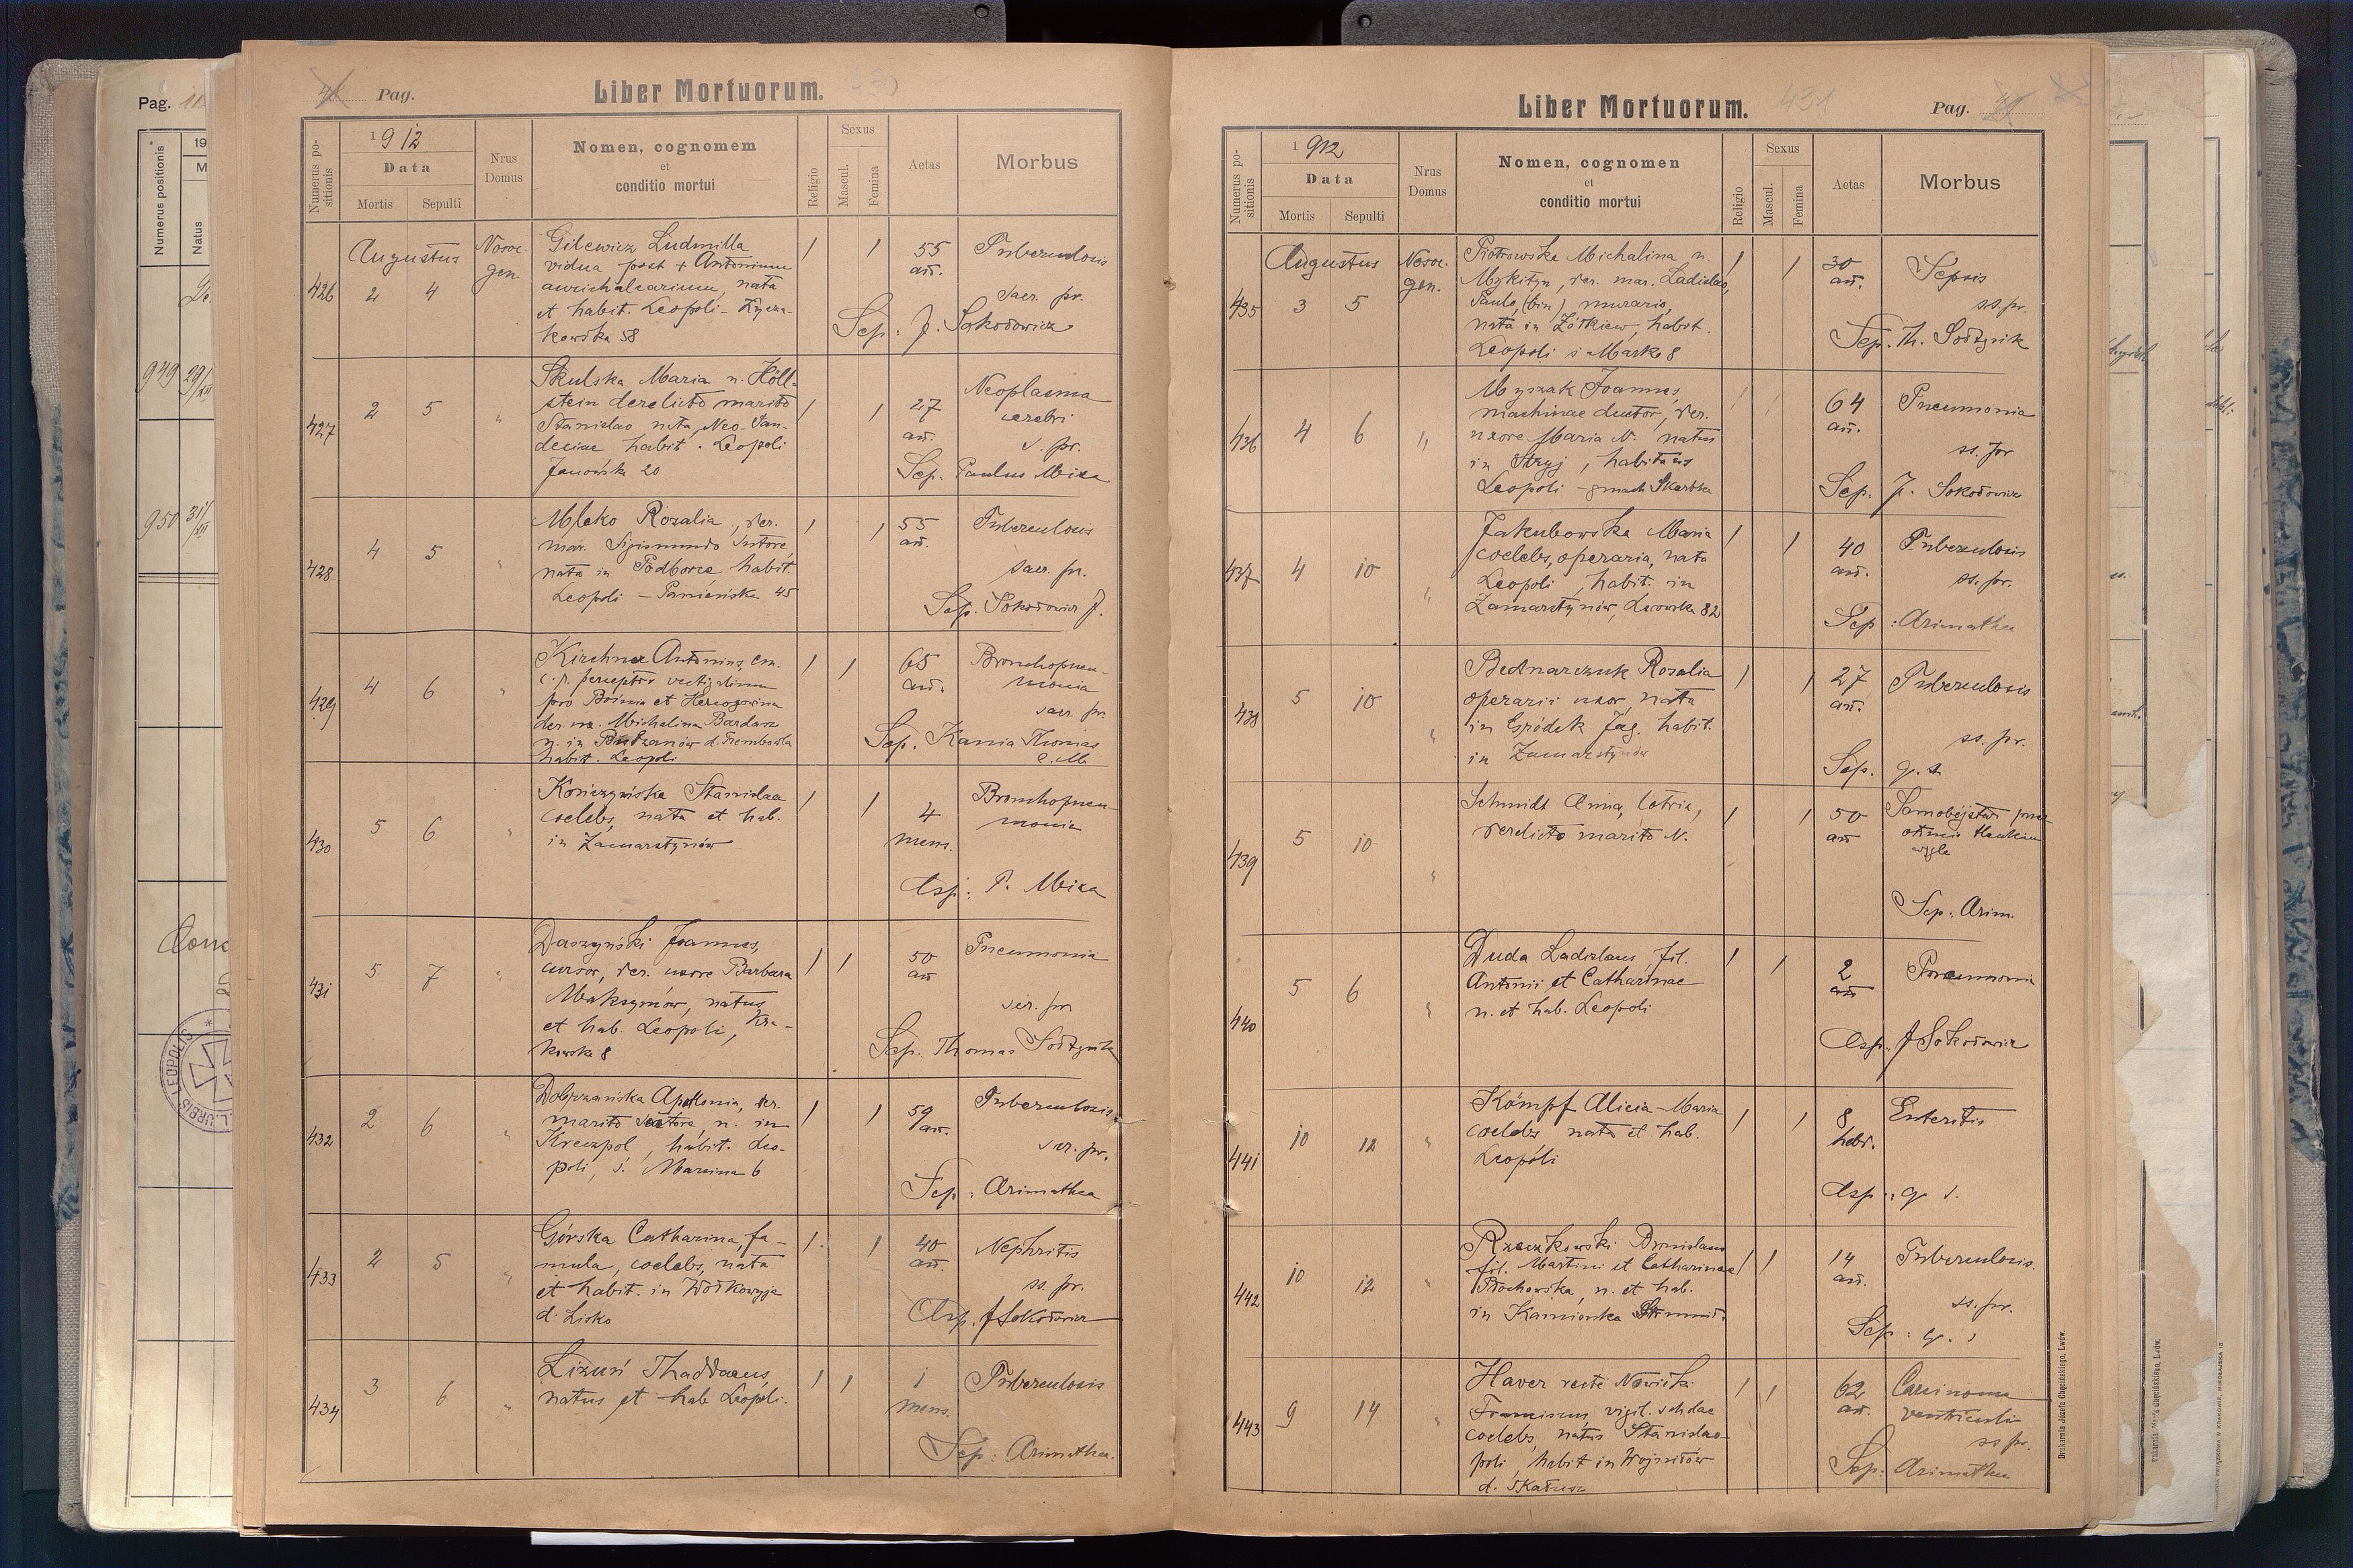 Pag. 11
Numerus positionis
19
M
Natus
949 29/XII
950 31/XII
Pag.
Liber Mortuorum.
Numerus positionis
1912
Data
Mortis
Sepulti
Nrus Domus
Nomen, cognomem
et
conditio mortui
Religio
Sexus
Mascul.
Femina
Aetas
Morbus
426
Augustus
2 4
Nosoc. gen.
Gilewicz Ludmilla
vidua post + Antonium
aurichalcarium, nata
et habit. Leopoli - Łycza-
kowska 58
1 1
55 an.
Tuberculosis
sacr. pr.
Sep: J. Sokołowicz
427
2 5
"
Skulska Maria n. Höll-
stein derelicto marito
Stanislao nata Neo-San-
deciae habit. Leopoli
Janowska 20
1 1
27 an.
Neoplasma
cerebri
s. pr.
Sep. Paulus Mica
428
4 5
"
Mleko Rozalia, der.
mar. Sigismundo sutore,
nata in Podborce habit.
Leopoli - Panieńska 45
1 1
55 an.
Tuberculosis
sacr. pr.
Sep. Sokołowicz J.
429
4 6
"
Kirchner Antonius, em.
c. r. perceptor vectigalium
pro Bosnia et Hercogovina
der. ux. Michalina Bardasz
n. in Budzanów d. Trembowla
habit. Leopoli
1 1
65 an.
Bronchopneu-
monia
sacr. pr.
Sep. Kania Thomas
C. M.
430
5 6
"
Konczyńska Stanislaa
coelebs, nata et hab.
in Zamarstynów
1 1
4 mens.
Bronchopneu-
monia
Asp: P. Mica
431
5 7
"
Daszyński Joannes,
cursor, der. uxore Barbara
Maksymów, natus
et hab. Leopoli, Kra-
kowska 8
1 1
50 an
Pneumonia
ser. pr
Sep. Thomas Sołtysik
432
2 6
"
Dobrzańska Apollonia, der.
marito sutore, n. in
Kreczpol, habit. Leo-
poli, s. Marcina 6
1 1
59 an.
Tuberculosis
sacr. pr.
Sep: Arimathea
433
2 5
"
Górska Catharina, fa-
mula, coelebs, nata
et habit. in Wołkowyja
d. Lisko
1 1
40 an.
Nephritis
ss. pr.
Asp. J Sokołowicz
434
3 6
"
Lizuń Thaddaeus,
natus et hab Leopoli.
1 1
1 mens.
Tuberculosis
Sep: Arimathea.
Liber Mortuorum.
431
Pag.
Numerus positionis
1912
Data
Mortis
Sepulti
Nrus Domus
Nomen, cognomen
et
conditio mortui
Religio
Sexus
Mascul.
Femina
Aetas
Morbus
435
Augustus
3 5
Nosoc. gen.
Piotrowska Michalina n.
Mykityn, der. mar. Ladislao,
Paulo (bin) murario,
nata in Żółkiew, habit.
Leopoli s Marka 8
1 1
30 an.
Sepsis
ss. pr.
Sep. Th. Sołtysik
436
4 6
"
Myszak Joannes,
machinae ductor, der.
uxore Maria N. natus
in Stryj, habitans
Leopoli - gmach Skarbka
1 1
64 an.
Pneumonia
ss. pr
Sep. J. Sokołowicz
437
4 10
"
Jakubowska Maria
coelebs, operaria, nata
Leopoli, habit. in
Zamarstynów, Lwowska 82
1 1
40 an.
Tuberculosis
ss. pr.
Sep: Arimathea
438
5 10
"
Bednarczuk Rosalia
operarii uxor, nata
in Gródek Jag. habit.
in Zamarstynów
1 1
27 an.
Tuberculosis
ss. pr.
Sep. q. s.
439
5 10
"
Schmidt Anna, lotrix,
derelicto marito N.
1 1
50 an
Samobójstwo przez
otrucie tlenkiem
węgla
Sep: Arim.
440
5 6
"
Duda Ladislaus, fil.
Antonii et Catharinae
n. et hab. Leopoli
1 1
2 an
Pneumonia
Asp. J Sokołowicz
441
10 12
"
Kömpf Alicia-Maria
coelebs, nata et hab.
Leopoli
1 1
8 hebd.
Enteritis
Asp: q s.
442
10 12
"
Rzeczkowski Bronislaus
fil. Martini et Catharinae
Błochowska, n. et hab.
in Kamionka Strumił.
1 1
14 an.
Tuberculosis.
ss. pr.
Sep: q. s
443
9 14
"
Haver recte Nowicki
Franciscus, vigil. scholae
coelebs, natus Stanislao-
poli, habit in Wojniłów
d. Kałusz
1 1
62 an.
Carcinoma
ventriculi
ss pr.
Sep: Arimathea
Drukarnia Józefa Chęcińskiego, Lwów.